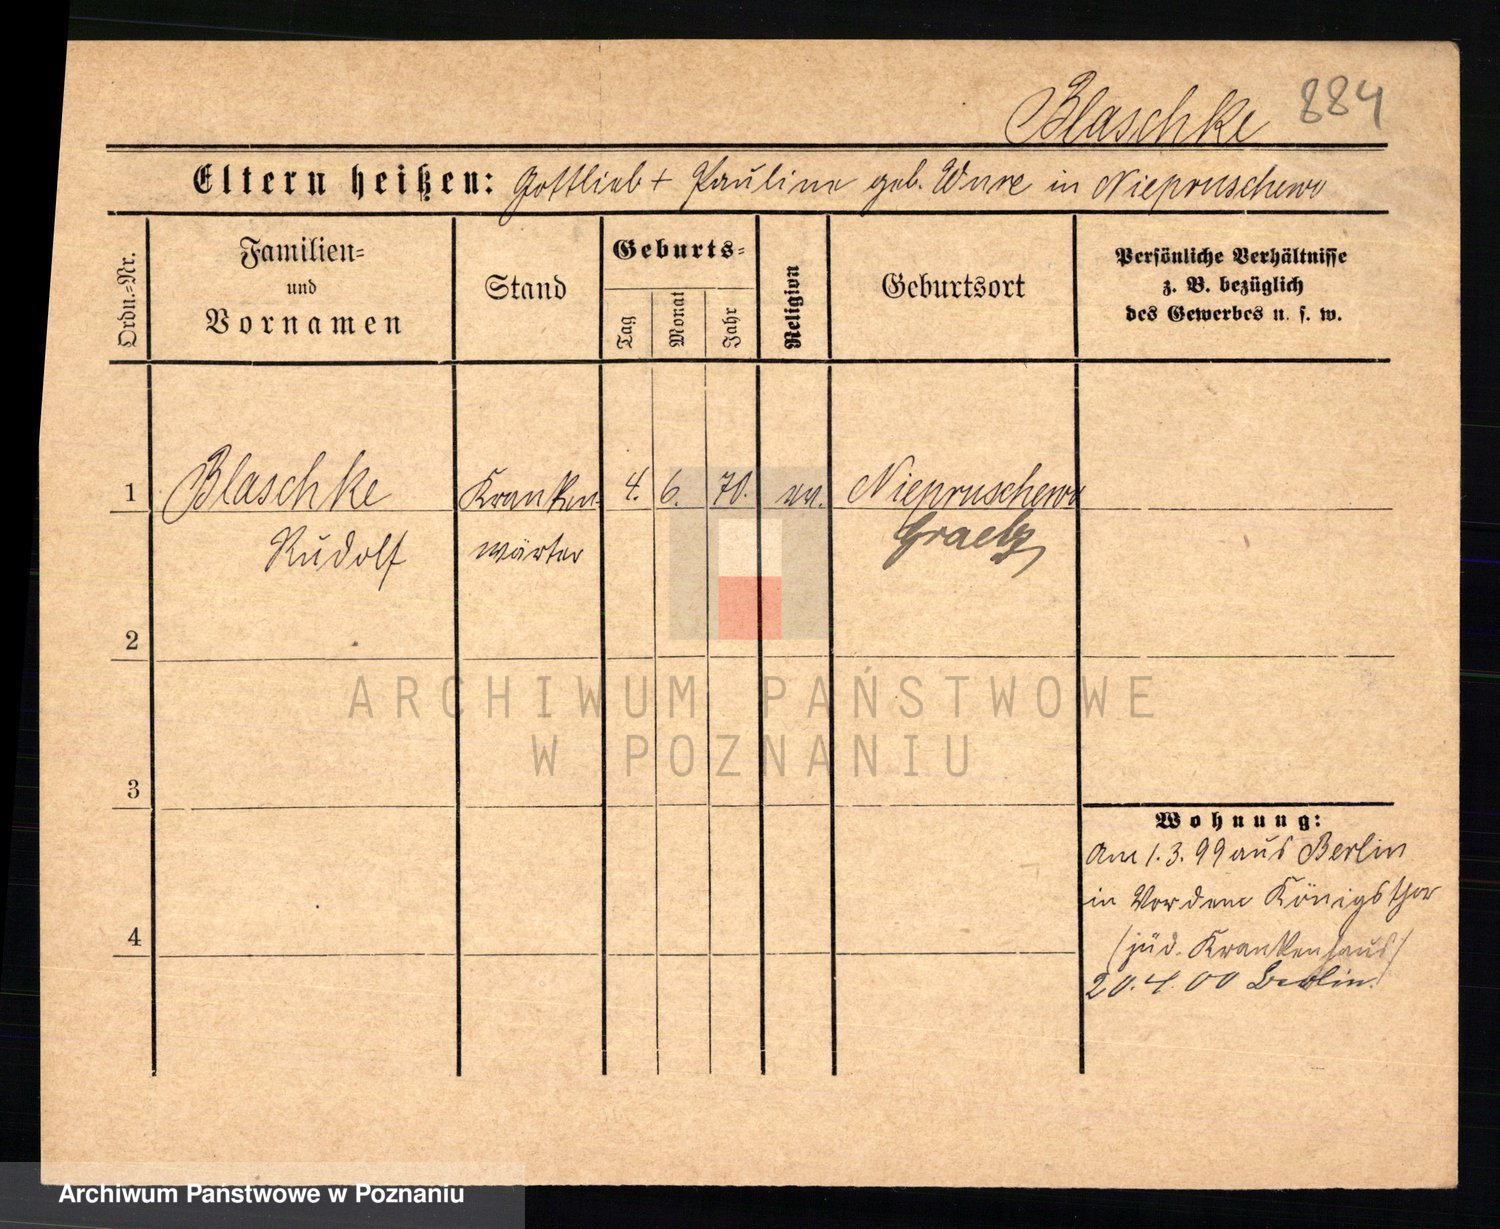 Blaschke 884
Eltern heißen: Gottlieb + Pauline geb. in Niepruschewo
Ordn.=Nr.
Familien=
und
Vornamen
Stand
Geburts=
Tag
Monat
Jahr
Religion
Geburtsort
Persönliche Verhältnisse
z. B. bezüglich
des Gewerbes u. s. w.
1 Blaschke Kranken 4. 6. 70. ev. Niepruschewo
Rudolf wärter Graetz
2
ARCHIWUM PAŃSTWOWE
W POZNANIU
3
Wohnung:
Am 1.3.99 aus Berlin
in Vor dem Königsthor
(jüd. Krankenhaus)
4
20.4.00 Berlin.
Archiwum Państwowe w Poznaniu